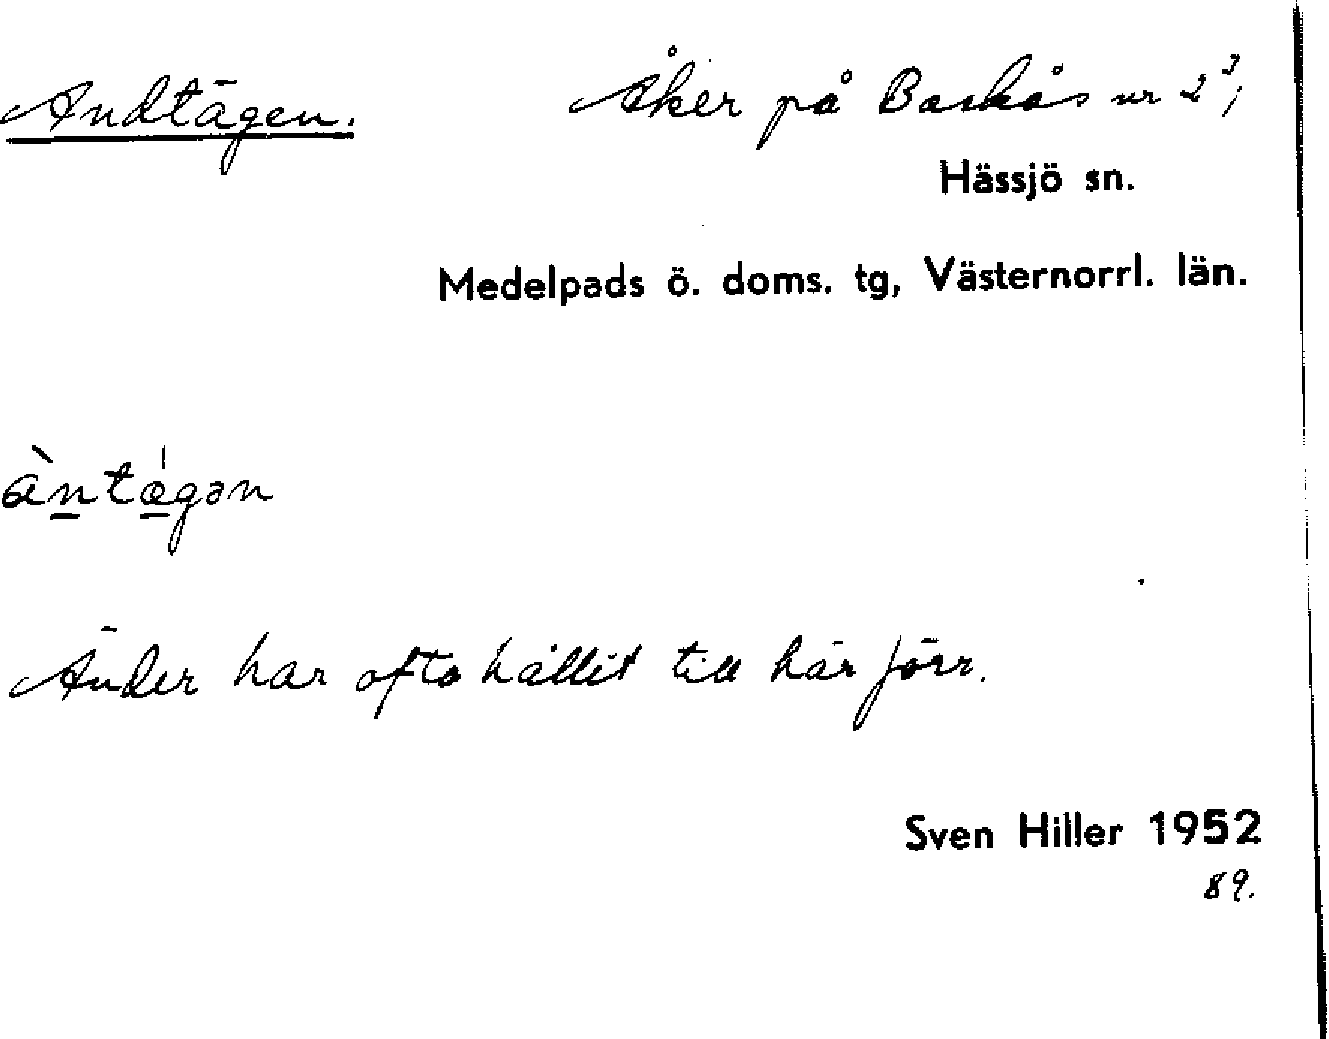 Andtägen. Åker på Baskås nr 2³,
Hässjö sn.
Medelpads ö. doms. tg, Västernorrl. län.
àntǽgən
Änder har ofta hållit till här förr.
Sven Hiller 1952
89.